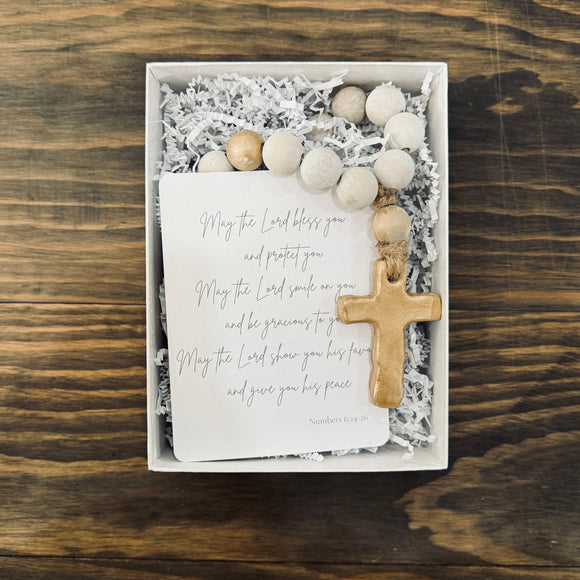 May the Lord bless you
and protect you.
May the Lord smile on you
and be gracious to you
May the Lord show you his favo
and give you his peace.
Numbers 6:24-26